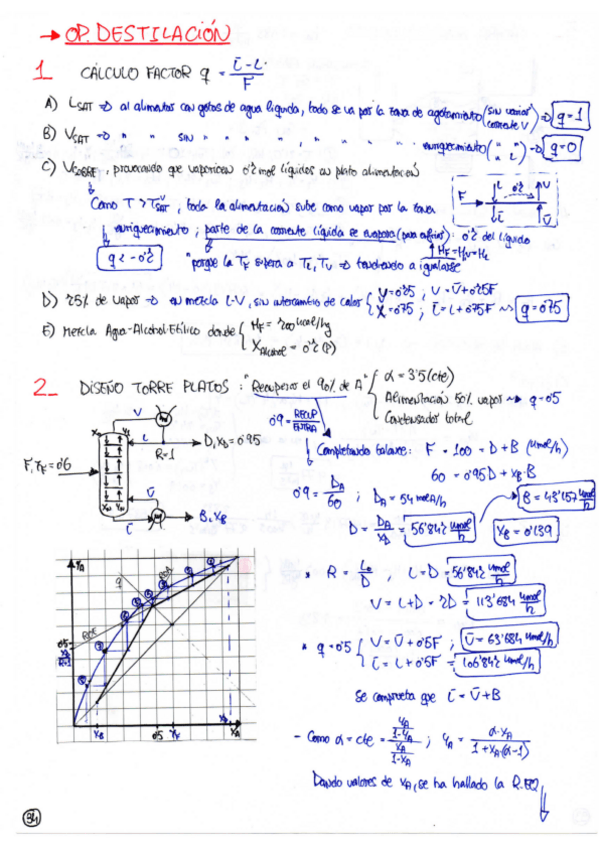 → OP. DESTILACIÓN
1 CÁLCULO FACTOR q = (L̄ - L) / F
A) L_SAT ⇒ al alimentar con gotas de agua líquida, todo se va por la zona de agotamiento (sin variar corriente V) ⇒ q = 1
B) V_SAT ⇒ " " SIN " " " , " " " " enriquecimiento ( " " L ) ⇒ q = 0
C) V_SOBRE, provocando que vaporicen 0'2 mol líquidos en plato alimentación
F L 0'2 V L̄ V̄
Como T > T_SAT^V, toda la alimentación sube como vapor por la zona
enriquecimiento; parte de la corriente líquida se evapora (para enfriar): 0'2 del líquido
q = -0'2
"porque la T_F supera a T_L, T_V ⇒ tendiendo a igualarse
D) 25% de vapor ⇒ en mezcla L-V, sin intercambio de calor { V = 0'25 ; V = V̄ + 0'25F
L = 0'75 ; L̄ = L + 0'75F ⇝ q = 0'75
E) Mezcla Agua-Alcohol Etílico donde { H_F = 200 kcal/kg
X_Alcohol = 0'2 (P)
2_ DISEÑO TORRE PLATOS: "Recuperar el 90% de A" { α = 3'5 (cte)
Alimentación 50% vapor ⇝ q = 0'5
Condensador total
0'9 = RECUP / ENTRA
V
L R = 1 D, x_D = 0'95
F, x_F = 0'6
V̄
L̄ B, x_B
Completando balance: F = 100 = D + B (kmol/h)
60 = 0'95D + x_B·B
0'9 = D_A / 60 ; D_A = 54 mol A/h
B = 43'157 kmol/h
D = D_A / x_D = 56'842 kmol/h
x_B = 0'139
* R = L_0 / D ; L = D = 56'842 kmol/h
V = L + D = 2D = 113'684 kmol/h
* q = 0'5 { V = V̄ + 0'5F ; V̄ = 63'684 kmol/h
L̄ = L + 0'5F = 106'842 kmol/h
Se comprueba que L̄ = V̄ + B
- Como α = cte = (y_A / (1 - y_A)) / (x_A / (1 - x_A)) ; y_A = α·x_A / (1 + x_A(α - 1))
Dando valores de x_A, se ha hallado la R. EQ
y_A
q
ROE
0'5
x_D / (R+1)
x_B 0'5 x_F x_D x_A
34